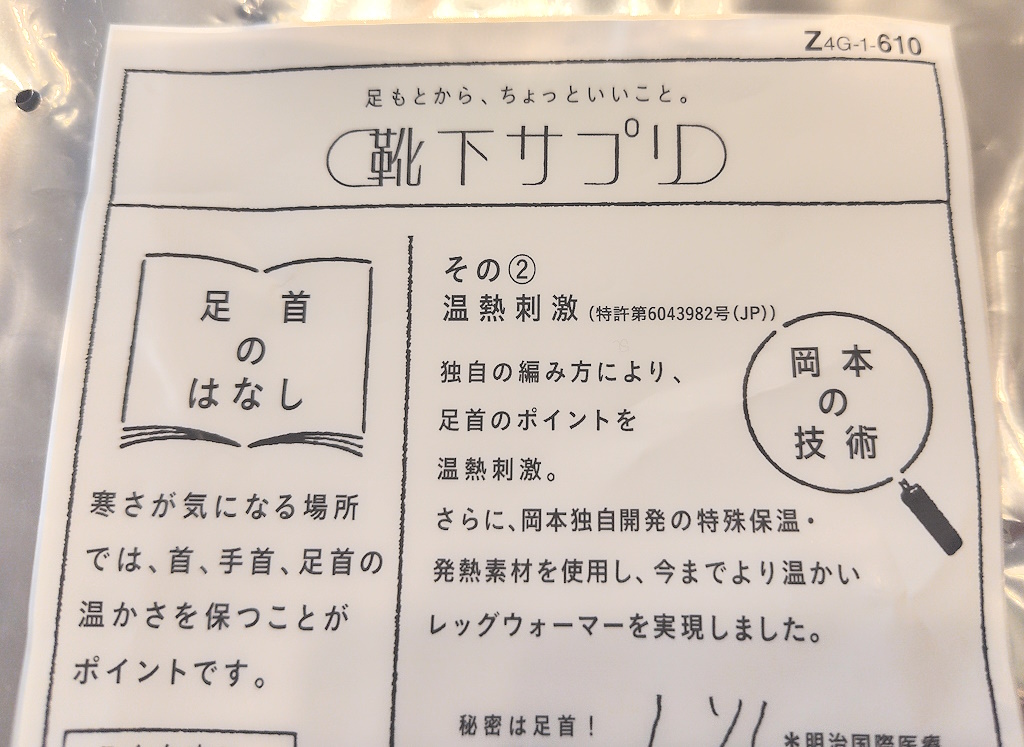 Z4G-1-610
足もとから、ちょっといいこと。
靴下サプリ
足首
の
はなし
寒さが気になる場所
では、首、手首、足首の
温かさを保つことが
ポイントです。
その②
温熱刺激(特許第6043982号(JP))
独自の編み方により、
足首のポイントを
温熱刺激。
さらに、岡本独自開発の特殊保温・
発熱素材を使用し、今までより温かい
レッグウォーマーを実現しました。
岡本
の
技術
秘密は足首!
*明治国際医療